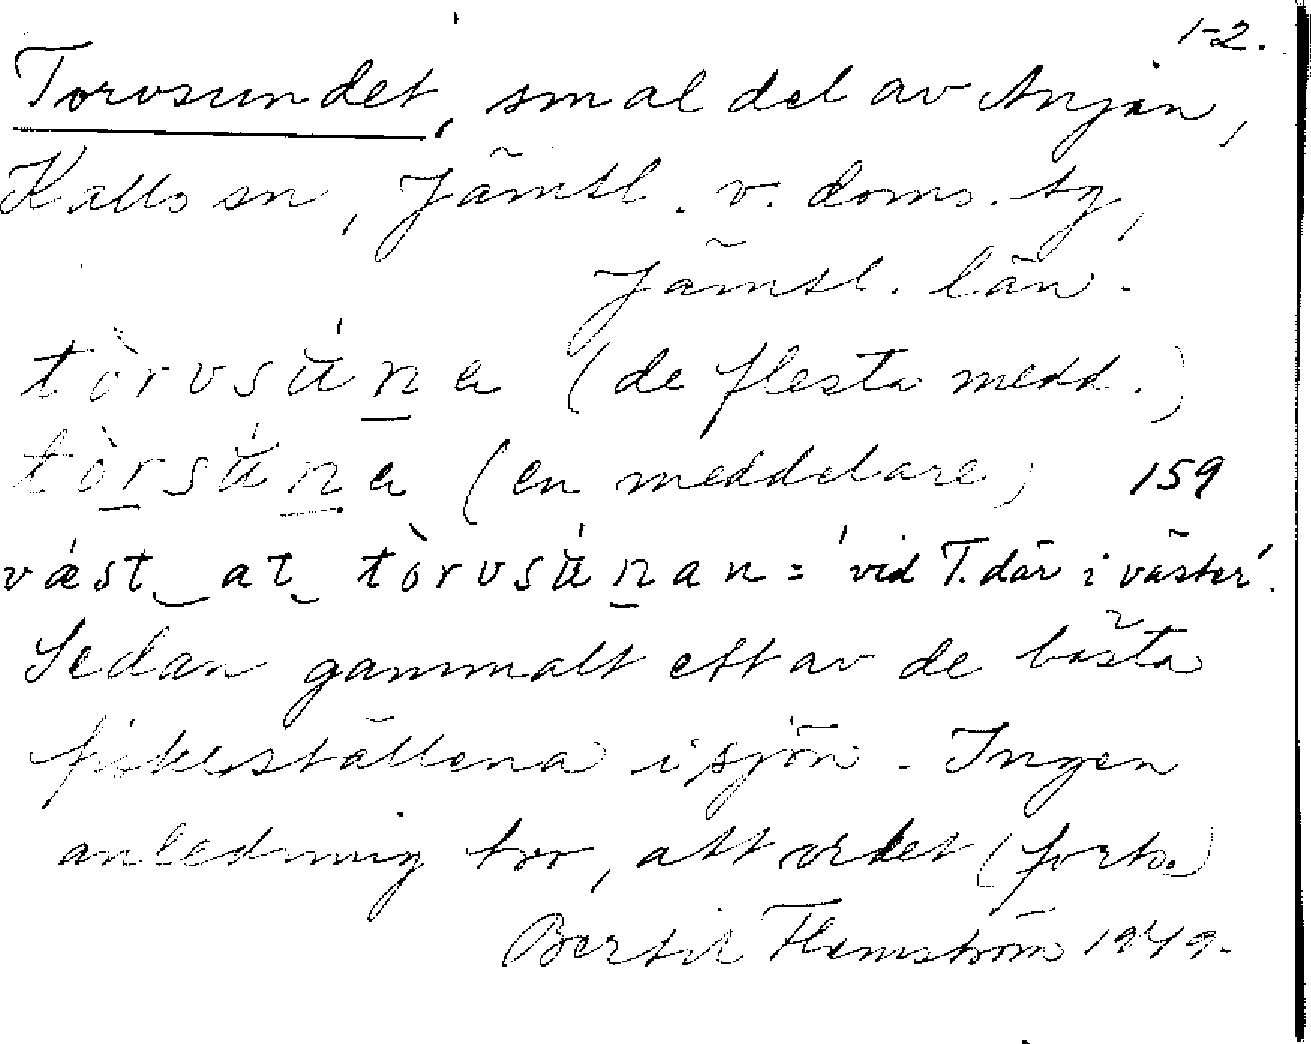 1-2.
Torvsundet, smal del av Anjan,
Kalls sn, Jämtl. v. doms. tg,
Jämtl. län.
tòrvsú̈na (de flesta medd.)
tòrsú̈na (en meddelare) 159
vǽst at tòrvsú̈nan = 'vid T. där i väster'.
Sedan gammalt ett av de bästa
fiskeställena i sjön. Ingen
anledning tro, att ordet (forts.)
Bertil Flemström 1949.